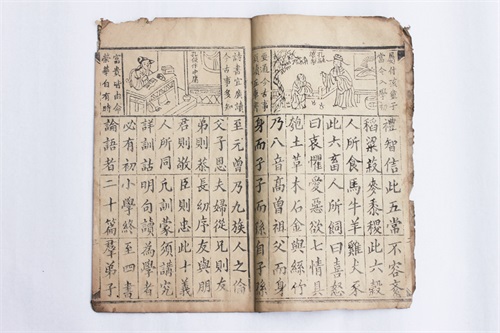 禮智信此五常不容紊
稻粱菽麥黍稷此六穀
人所食馬牛羊雞犬豕
此六畜人所飼曰喜怒
曰哀懼愛惡欲七情具
匏土革木石金與絲竹
乃八音高曾祖父而身
身而子子而孫自子孫
詩書宜廣讀
今古事多知
富貴皆由命
榮華自有時
至元曾乃九族人之倫
父子恩夫婦從兄則友
弟則恭長幼序友與朋
君則敬臣則忠此十義
人所同凡訓蒙須講究
詳訓詁明句讀為學者
必有初小學終至四書
論語者二十篇羣弟子